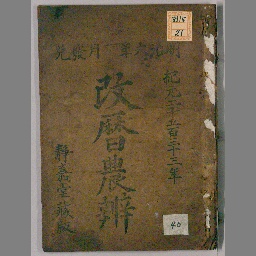 紀元二千五百三十三年
明治六年一月發兌
改暦農辨
静嘉堂藏版
21
40